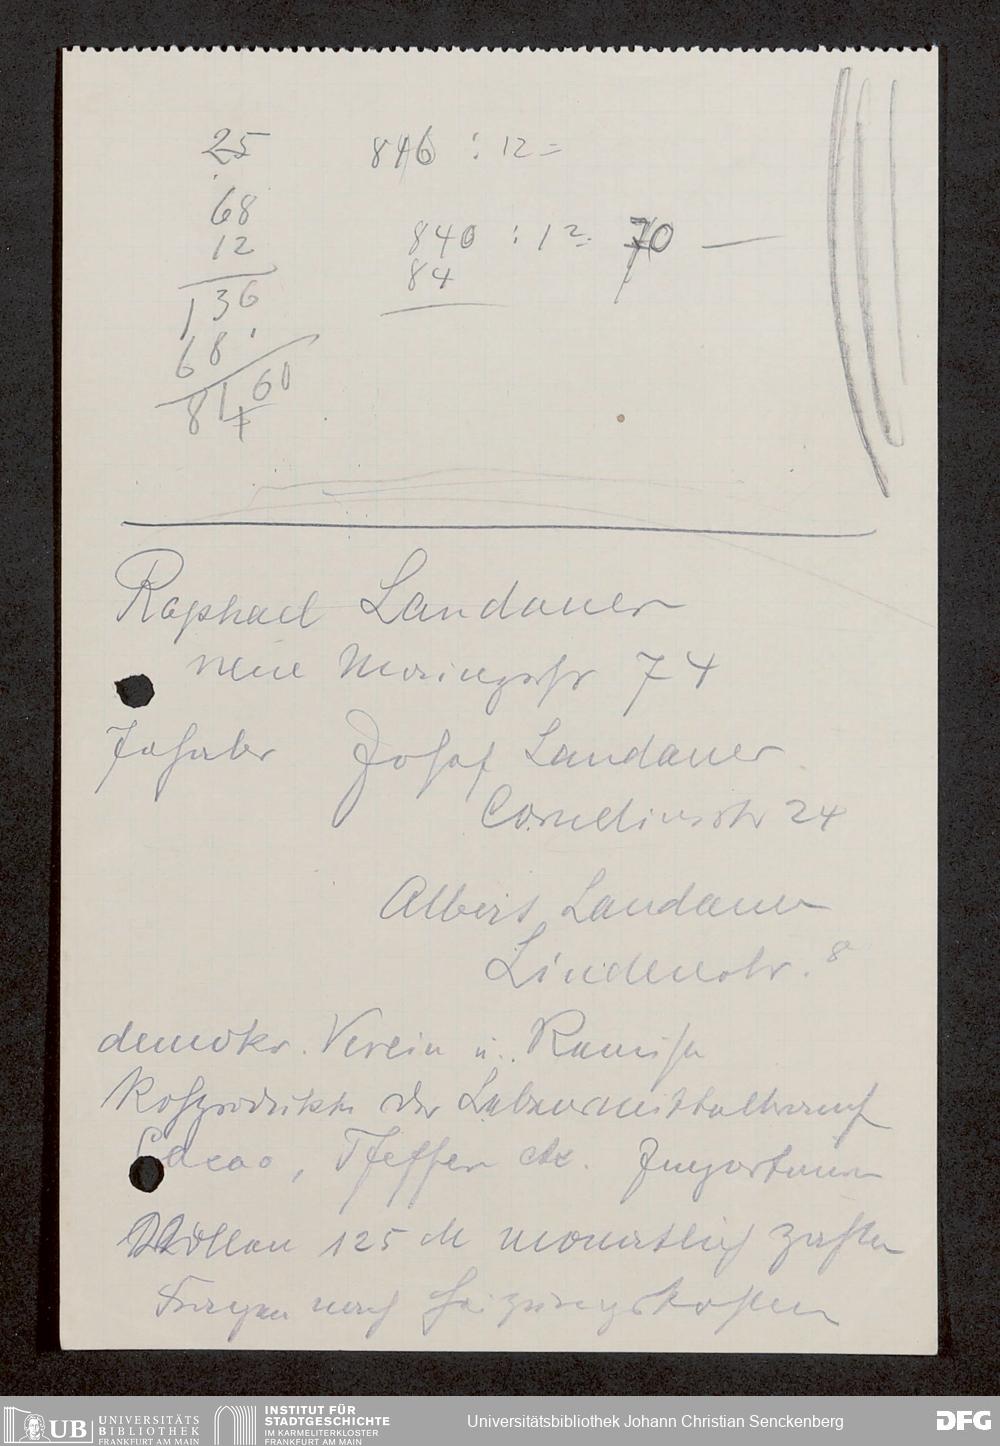 25
68
12
136
68
8160
846 : 12 =
840 : 12 = 70 —
84
Raphael Landauer
neue Mainzerstr 74
Inhaber Josef Landauer
Corneliusstr 24
Albert Landauer
Lindenstr. 8
demokr. Verein u.
Rohprodukte der Lebensmittelbranch
Cacao, Pfeffer etc. Importeure
Wollen 125 M monatlich zahlen
Fragen nach Heizungskosten
UB UNIVERSITÄTS
BIBLIOTHEK
FRANKFURT AM MAIN
INSTITUT FÜR
STADTGESCHICHTE
IM KARMELITERKLOSTER
FRANKFURT AM MAIN
Universitätsbibliothek Johann Christian Senckenberg
DFG